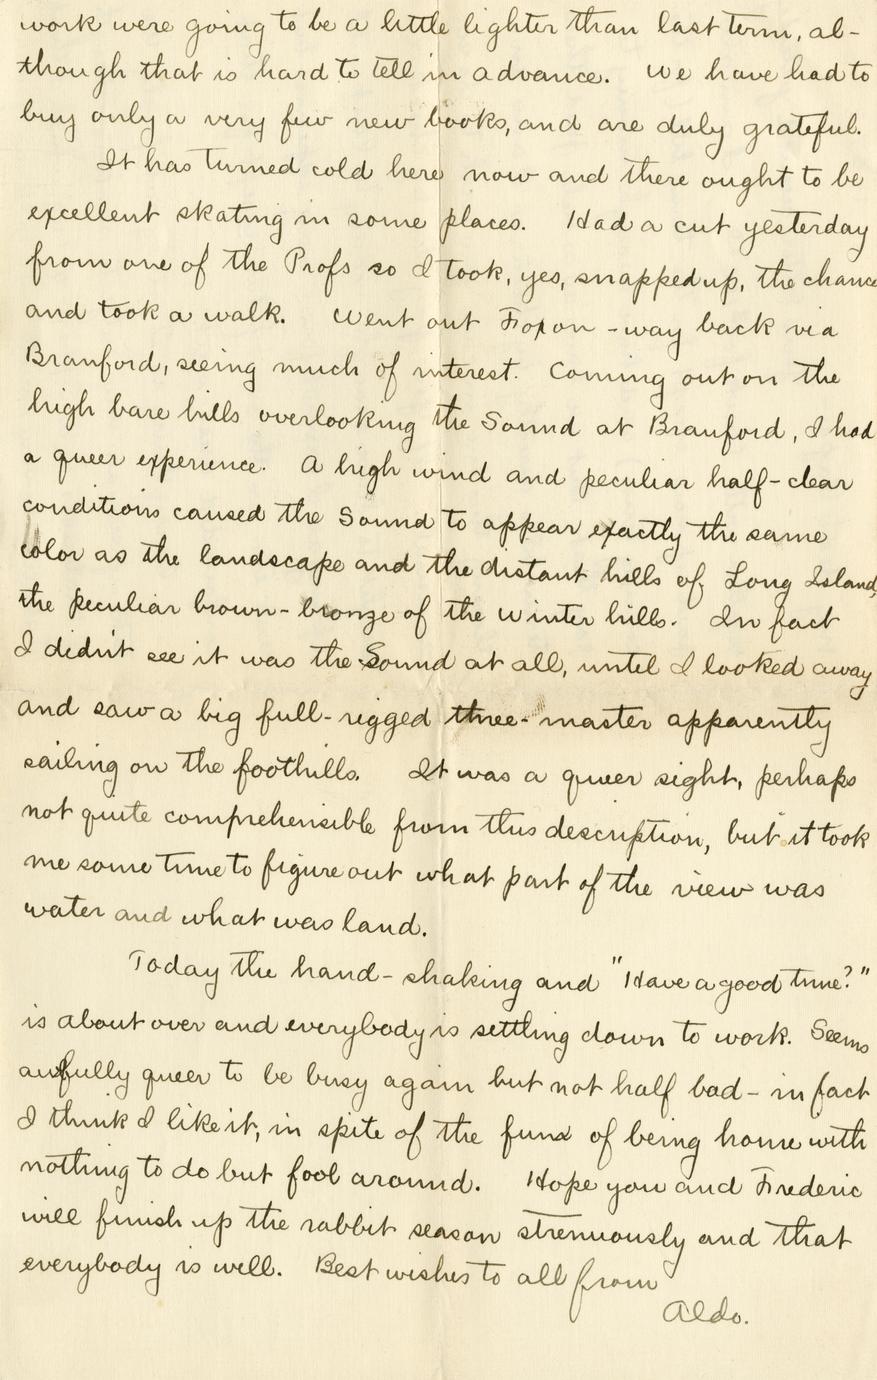 work were going to be a little lighter than last term, al-
though that is hard to tell in advance. We have had to
buy only a very few new books, and are duly grateful.
It has turned cold here now and there ought to be
excellent skating in some places. Had a cut yesterday
from one of the Profs so I took, yes, snapped up, the chance
and took a walk. Went out Foxon-way back via
Branford, seeing much of interest. Coming out on the
high bare hills overlooking the Sound at Branford, I had
a queer experience. A high wind and peculiar half-clear
conditions caused the Sound to appear exactly the same
color as the landscape and the distant hills of Long Island,
the peculiar brown-bronze of the winter hills. In fact
I didn't see it was the Sound at all, until I looked away
and saw a big full-rigged three-master apparently
sailing on the foothills. It was a queer sight, perhaps
not quite comprehensible from this description, but it took
me some time to figure out what part of the view was
water and what was land.
Today the hand-shaking and "Have a good time?"
is about over and everybody is settling down to work. Seems
awfully queer to be busy again but not half bad - in fact
I think I like it, in spite of the fun of being home with
nothing to do but fool around. Hope you and Frederic
will finish up the rabbit season strenuously and that
everybody is well. Best wishes to all from
Aldo.